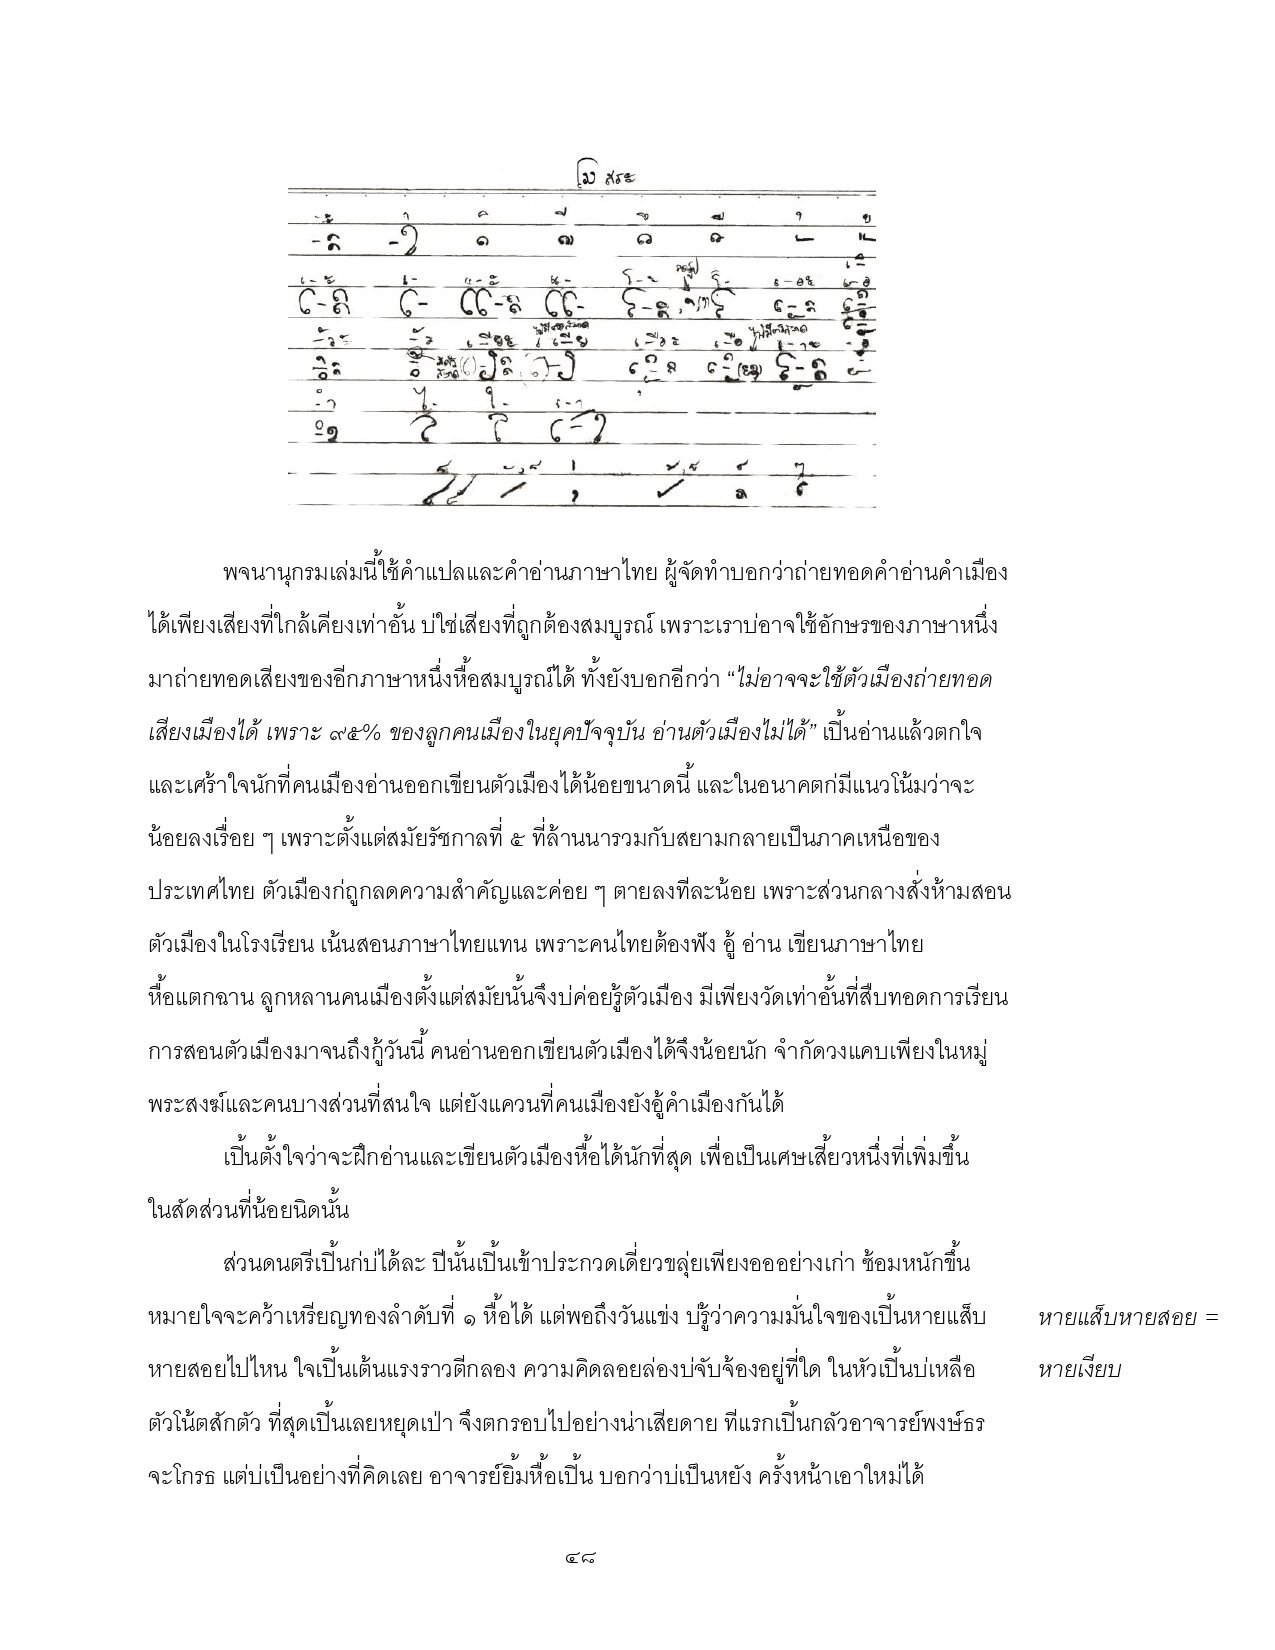 สระ
พจนานุกรมเล่มนี้ใช้คำแปลและคำอ่านภาษาไทย ผู้จัดทำบอกว่าถ่ายทอดคำอ่านคำเมือง
ได้เพียงเสียงที่ใกล้เคียงเท่าอั้น บ่ใช่เสียงที่ถูกต้องสมบูรณ์ เพราะเราบ่อาจใช้อักษรของภาษาหนึ่ง
มาถ่ายทอดเสียงของอีกภาษาหนึ่งหื้อสมบูรณ์ได้ ทั้งยังบอกอีกว่า “ไม่อาจจะใช้ตัวเมืองถ่ายทอด
เสียงเมืองได้ เพราะ ๙๕% ของลูกคนเมืองในยุคปัจจุบัน อ่านตัวเมืองไม่ได้” เปิ้นอ่านแล้วตกใจ
และเศร้าใจนักที่คนเมืองอ่านออกเขียนตัวเมืองได้น้อยขนาดนี้ และในอนาคตก่มีแนวโน้มว่าจะ
น้อยลงเรื่อย ๆ เพราะตั้งแต่สมัยรัชกาลที่ ๕ ที่ล้านนารวมกับสยามกลายเป็นภาคเหนือของ
ประเทศไทย ตัวเมืองก่ถูกลดความสำคัญและค่อย ๆ ตายลงทีละน้อย เพราะส่วนกลางสั่งห้ามสอน
ตัวเมืองในโรงเรียน เน้นสอนภาษาไทยแทน เพราะคนไทยต้องฟัง อู้ อ่าน เขียนภาษาไทย
หื้อแตกฉาน ลูกหลานคนเมืองตั้งแต่สมัยนั้นจึงบ่ค่อยรู้ตัวเมือง มีเพียงวัดเท่าอั้นที่สืบทอดการเรียน
การสอนตัวเมืองมาจนถึงกู้วันนี้ คนอ่านออกเขียนตัวเมืองได้จึงน้อยนัก จำกัดวงแคบเพียงในหมู่
พระสงฆ์และคนบางส่วนที่สนใจ แต่ยังแควนที่คนเมืองยังอู้คำเมืองกันได้
เปิ้นตั้งใจว่าจะฝึกอ่านและเขียนตัวเมืองหื้อได้นักที่สุด เพื่อเป็นเศษเสี้ยวหนึ่งที่เพิ่มขึ้น
ในสัดส่วนที่น้อยนิดนั้น
ส่วนดนตรีเปิ้นก่บ่ได้ละ ปีนั้นเปิ้นเข้าประกวดเดี่ยวขลุ่ยเพียงอออย่างเก่า ซ้อมหนักขึ้น
หมายใจจะคว้าเหรียญทองลำดับที่ ๑ หื้อได้ แต่พอถึงวันแข่ง บ่รู้ว่าความมั่นใจของเปิ้นหายแส็บ
หายสอยไปไหน ใจเปิ้นเต้นแรงราวตีกลอง ความคิดลอยล่องบ่จับจ้องอยู่ที่ใด ในหัวเปิ้นบ่เหลือ
ตัวโน้ตสักตัว ที่สุดเปิ้นเลยหยุดเป่า จึงตกรอบไปอย่างน่าเสียดาย ทีแรกเปิ้นกลัวอาจารย์พงษ์ธร
จะโกรธ แต่บ่เป็นอย่างที่คิดเลย อาจารย์ยิ้มหื้อเปิ้น บอกว่าบ่เป็นหยัง ครั้งหน้าเอาใหม่ได้
หายแส็บหายสอย =
หายเงียบ
๔๘